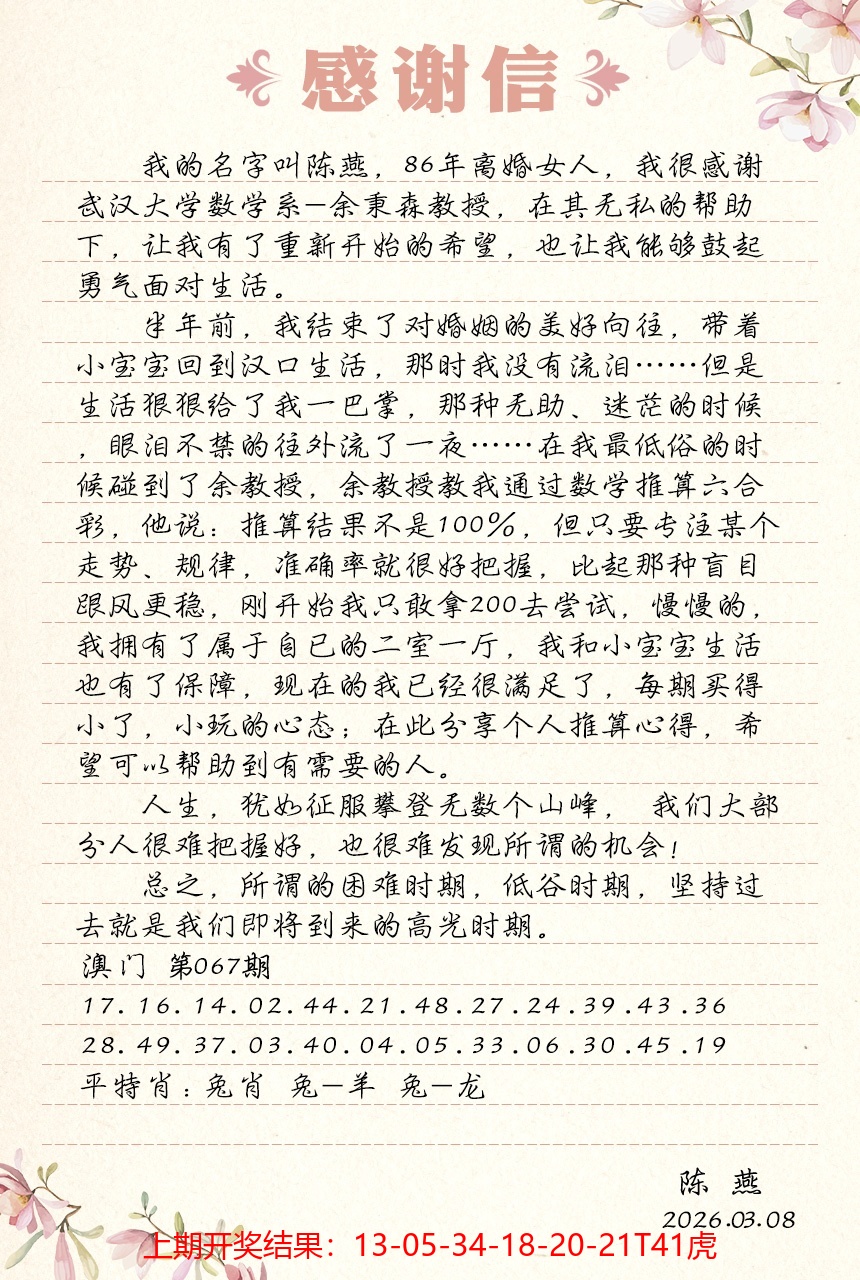 感谢信
我的名字叫陈燕，86年离婚女人，我很感谢
武汉大学数学系—余秉森教授，在其无私的帮助
下，让我有了重新开始的希望，也让我能够鼓起
勇气面对生活。
半年前，我结束了对婚姻的美好向往，带着
小宝宝回到汉口生活，那时我没有流泪……但是
生活狠狠给了我一巴掌，那种无助、迷茫的时候
，眼泪不禁的往外流了一夜……在我最低俗的时
候碰到了余教授，余教授教我通过数学推算六合
彩，他说：推算结果不是100%，但只要专注某个
走势、规律，准确率就很好把握，比起那种盲目
跟风更稳，刚开始我只敢拿200去尝试，慢慢的，
我拥有了属于自已的二室一厅，我和小宝宝生活
也有了保障，现在的我已经很满足了，每期买得
小了，小玩的心态；在此分享个人推算心得，希
望可以帮助到有需要的人。
人生，犹如征服攀登无数个山峰， 我们大部
分人很难把握好，也很难发现所谓的机会！
总之，所谓的困难时期，低谷时期，坚持过
去就是我们即将到来的高光时期。
澳门 第067期
17.16.14.02.44.21.48.27.24.39.43.36
28.49.37.03.40.04.05.33.06.30.45.19
平特肖：兔肖 兔—羊 兔—龙
陈 燕
2026.03.08
上期开奖结果：13-05-34-18-20-21T41虎